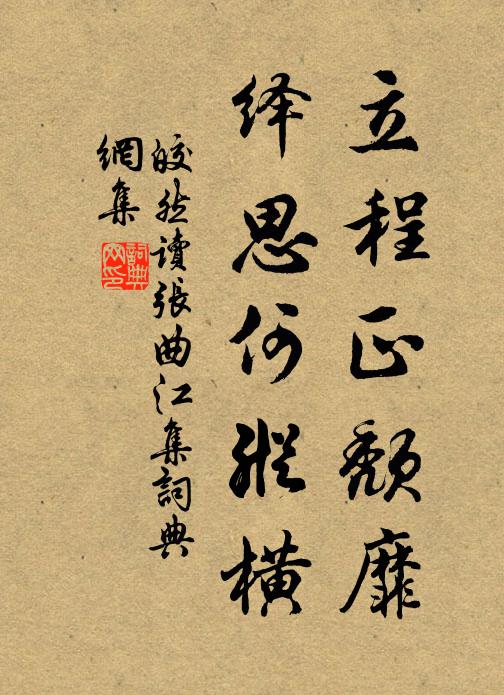 立程正颓靡
绎思何縱橫
皎然讀張曲江集詞典
網集
詞典
网印